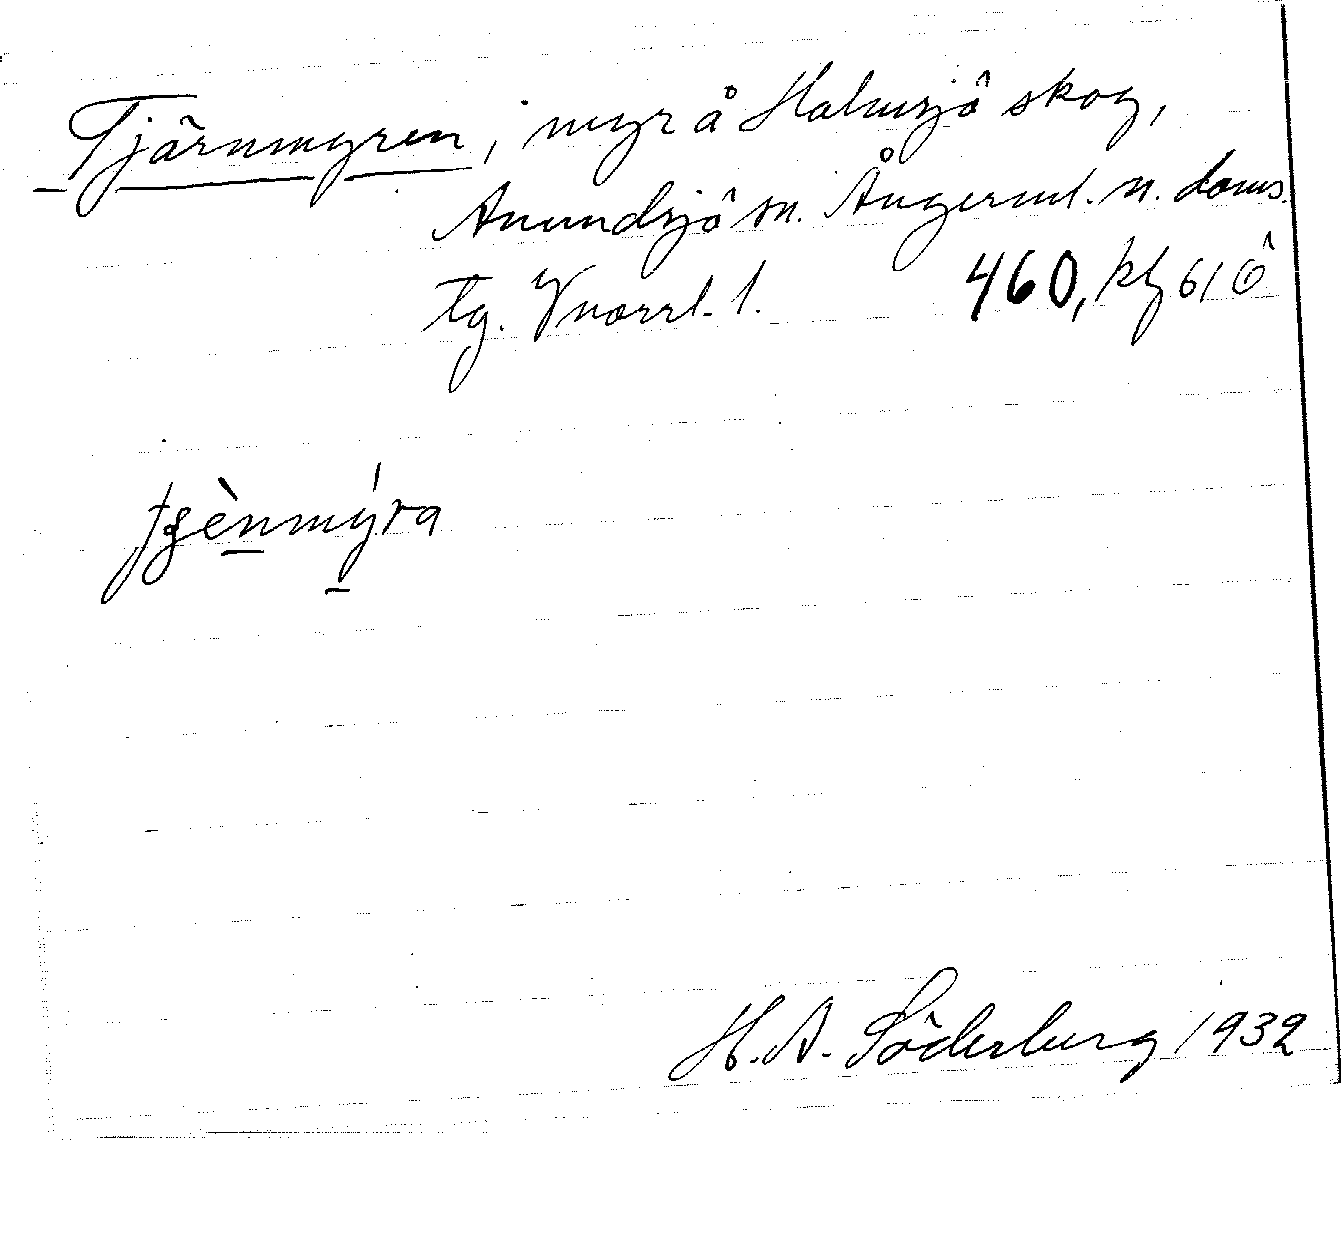 Tjärnmyren, myr å Holmsjö skog,
Anundsjö sn. Ångerml. n. doms.
tg. Vnorrl. l. 460, kbl 61 ö
tjènmýra
H. A. Söderberg 1932